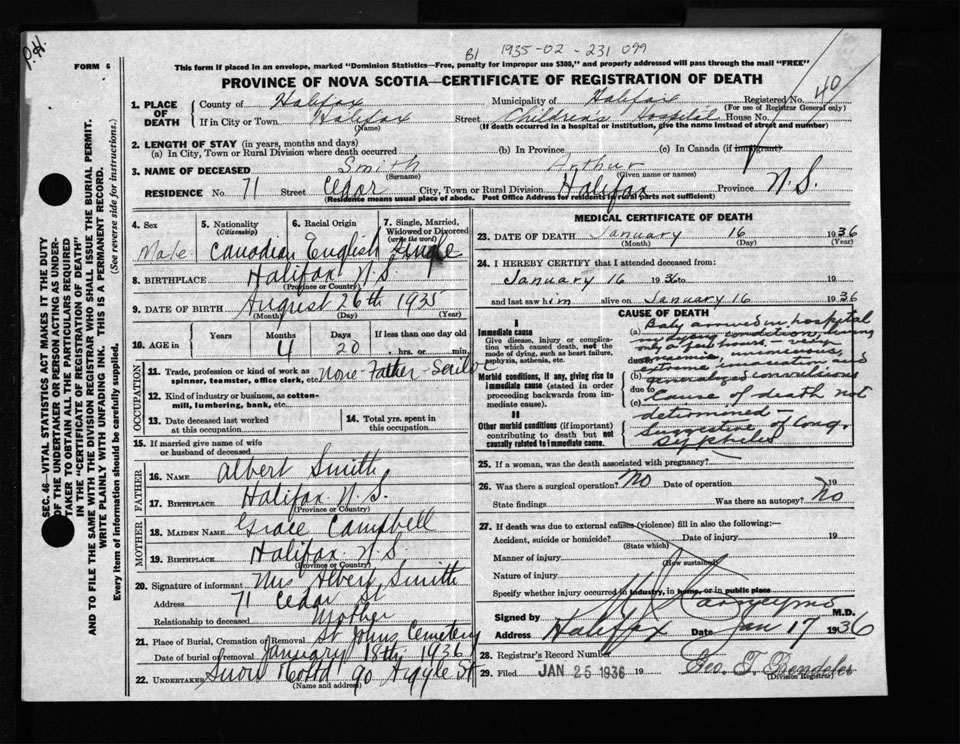 P.H.
B1 1935-02-231 099
FORM 6
This form if placed in an envelope, marked "Dominion Statistics—Free, penalty for improper use $300," and properly addressed will pass through the mail "FREE"
PROVINCE OF NOVA SCOTIA—CERTIFICATE OF REGISTRATION OF DEATH
SEC. 46—VITAL STATISTICS ACT MAKES IT THE DUTY
OF THE UNDERTAKER OR PERSON ACTING AS UNDER-
TAKER TO OBTAIN ALL THE PARTICULARS REQUIRED
IN THE "CERTIFICATE OF REGISTRATION OF DEATH"
AND TO FILE THE SAME WITH THE DIVISION REGISTRAR WHO SHALL ISSUE THE BURIAL PERMIT.
WRITE PLAINLY WITH UNFADING INK. THIS IS A PERMANENT RECORD.
Every item of information should be carefully supplied. (See reverse side for instructions.)
1. PLACE OF DEATH County of Halifax Municipality of Halifax Registered No. 40
(For use of Registrar General only)
If in City or Town Halifax Street Children's Hospital House No.
(Name) (If death occurred in a hospital or institution, give the name instead of street and number)
2. LENGTH OF STAY (in years, months and days)
(a) In City, Town or Rural Division where death occurred (b) In Province (c) In Canada (if immigrant)
3. NAME OF DECEASED Smith Arthur
(Surname) (Given name or names)
RESIDENCE No 71 Street Cedar City, Town or Rural Division Halifax Province N.S.
(Residence means usual place of abode. Post Office Address for residents in rural parts not sufficient)
4. Sex 5. Nationality (Citizenship) 6. Racial Origin 7. Single, Married, Widowed or Divorced (write the word)
Male Canadian English Single
8. BIRTHPLACE Halifax N.S.
(Province or Country)
9. DATE OF BIRTH August 26th 1935
(Month) (Day) (Year)
10. AGE in Years Months Days If less than one day old
4 20 hrs. or min.
OCCUPATION
11. Trade, profession or kind of work as
spinner, teamster, office clerk, etc. None-Father-
12. Kind of industry or business, as cotton-
mill, lumbering, bank, etc.
13. Date deceased last worked
at this occupation
14. Total yrs. spent in
this occupation
15. If married give name of wife
or husband of deceased
FATHER
16. NAME Albert Smith
17. BIRTHPLACE Halifax N.S.
(Province or Country)
MOTHER
18. MAIDEN NAME Grace Campbell
19. BIRTHPLACE Halifax N.S.
(Province or Country)
20. Signature of informant Mrs Albert Smith
Address 71 Cedar St
Relationship to deceased Mother
21. Place of Burial, Cremation or Removal St Johns Cemetery
Date of burial or removal January 18th 1936
22. UNDERTAKER Snow 90 Argyle St
(Name and address)
MEDICAL CERTIFICATE OF DEATH
23. DATE OF DEATH January 16 1936
(Month) (Day) (Year)
24. I HEREBY CERTIFY that I attended deceased from:
January 16 1936 to 19
and last saw him alive on January 16 1936
CAUSE OF DEATH
I
Immediate cause
Give disease, injury or complica-
tion which caused death, not the
mode of dying, such as heart failure,
asphyxia, asthenia, etc.
Morbid conditions, if any, giving rise to
immediate cause (stated in order
proceeding backwards from im-
mediate cause).
II
Other morbid conditions (if important)
contributing to death but not
causally related to immediate cause.
(a) Baby arrived in hospital
in dying condition, living
only a few hours - very
due to anaemic, unconscious,
(b) extreme emaciation and
generalized convulsions
due to
(c) Cause of death not
determined -
Suggestive of cong.
syphilis
25. If a woman, was the death associated with pregnancy?
26. Was there a surgical operation? No Date of operation 19
State findings Was there an autopsy? No
27. If death was due to external causes (violence) fill in also the following:—
Accident, suicide or homicide? Date of injury 19
(State which)
Manner of injury
(How sustained)
Nature of injury
Specify whether injury occurred in industry, in home, or in public place
Signed by M.D.
Address Halifax Date Jan 17 1936
28. Registrar's Record Number
29. Filed JAN 25 1936 19 Geo. T.
(Division Registrar)